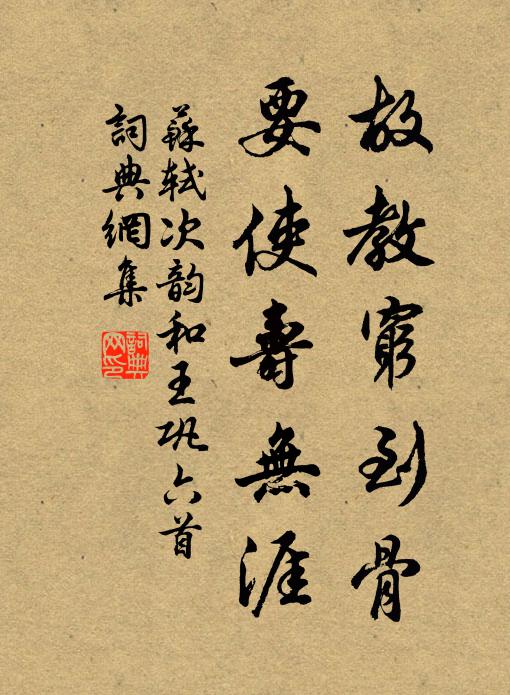 故教窮到骨
要使壽無涯
蘇軾次韵和王巩六首
詞典網集
詞典
网印